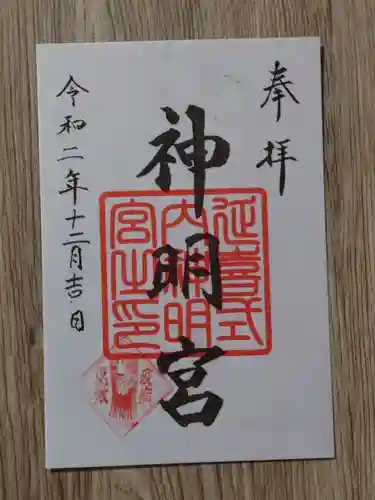 奉拝
神明宮
延喜式
内神明
宮之印
令和二年十二月吉日